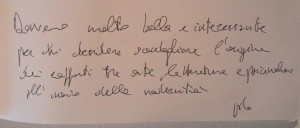 Davvero molto bella e interessante
per chi desidera raccogliere l'origine
dei rapporti tra arte, letteratura e psicoanalisi
all' inizio della modernità